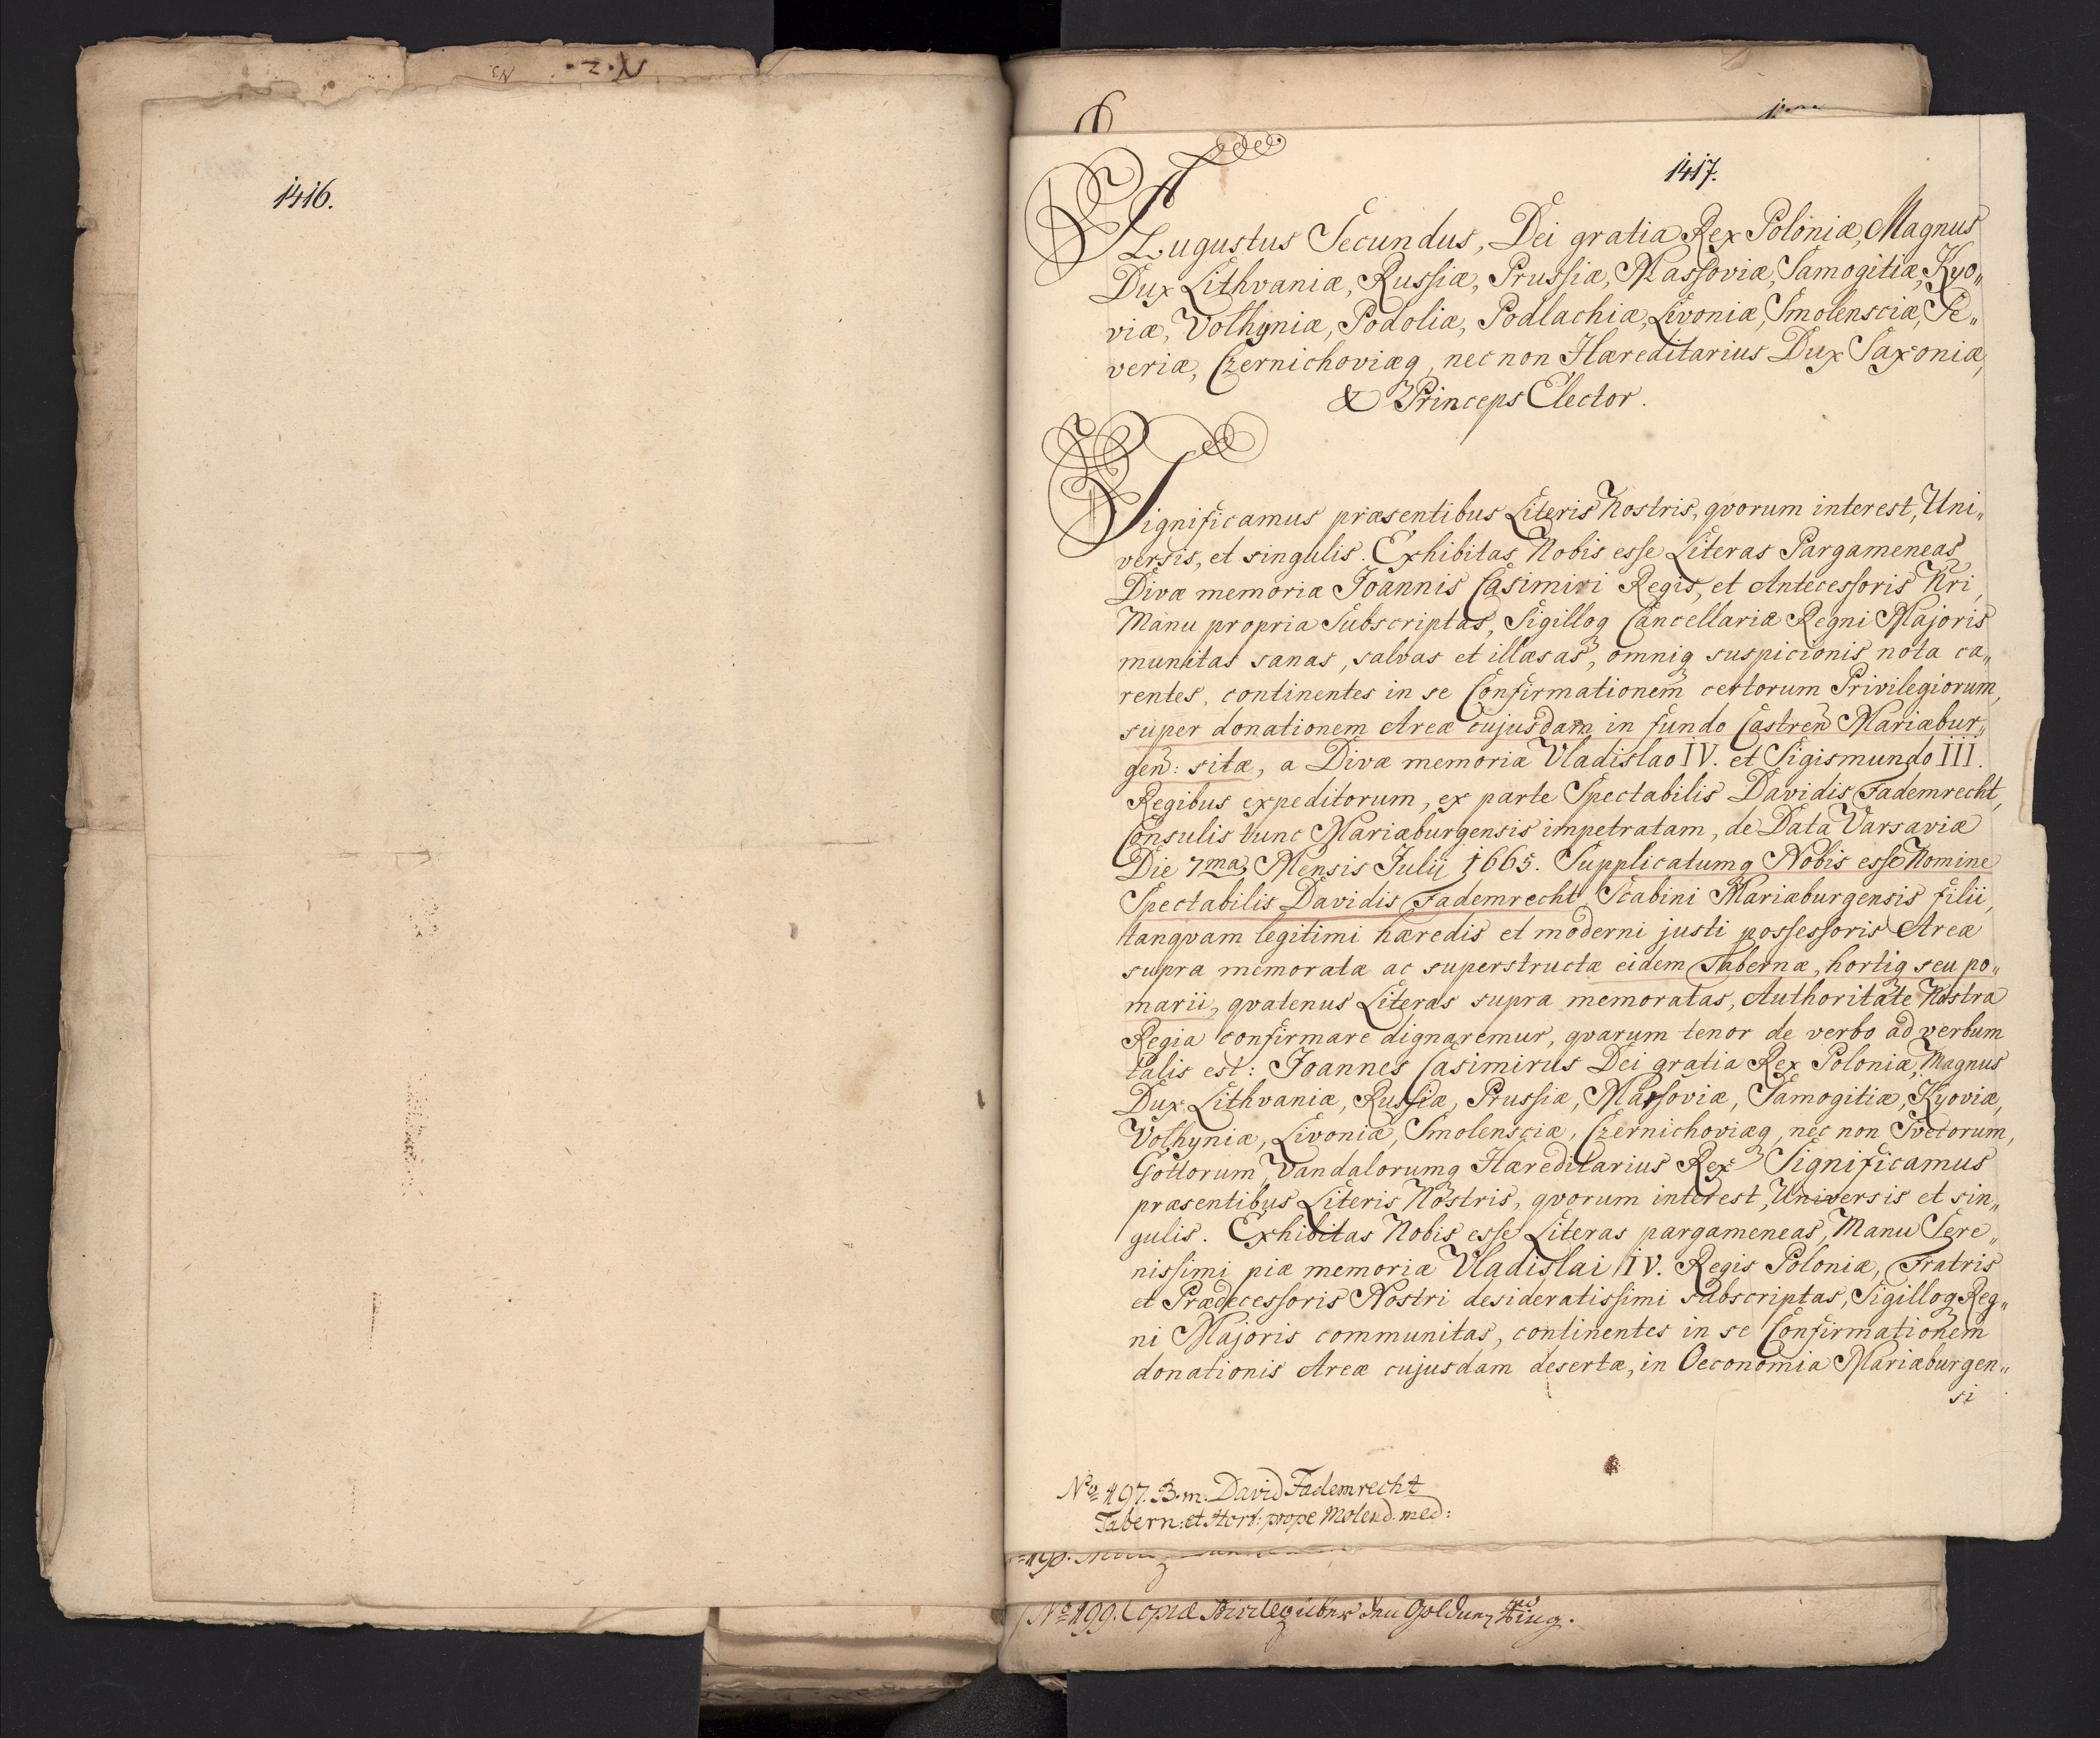 N. 2.
1416.
1417.
Augustus Secundus, Dei gratia Rex Poloniæ, Magnus
Dux Lithvaniæ, Russiæ, Prussiæ, Massoviæ, Samogitiæ, Kyo„
viæ, Volhyniæ, Podoliæ, Podlachiæ, Livoniæ, Smolensciæ, Se„
veriæ, Czernichoviæq, nec non Hæreditarius Dux Saxoniæ,
& Princeps Elector.
Significamus præsentibus Literis Nostris, qvorum interest, Uni„
versis, et singulis. Exhibitas Nobis esse Literas Pargameneas
Divæ memoriæ Joannis Casimiri Regis, et Antecessoris Nri,
Manu propria Subscriptas, Sigilloq Cancellariæ Regni Majoris
munitas sanas, salvas et illæsas, omniq suspicionis nota ca„
rentes, continentes in se Confirmationem certorum Privilegiorum,
super donationem Areæ cujusdam in fundo Castren Mariæbur„
gen: sitæ, a Divæ memoriæ Vladislao IV. et Sigismundo III.
Regibus expeditorum, ex parte Spectabilis Davidis Fademrecht,
Consulis tunc Mariæburgensis impetratam, de Data Varsaviæ
Die 7ma Mensis Julii 1665. Supplicatumq Nobis esse Nomine
Spectabilis Davidis Fademrecht Scabini Mariæburgensis filii,
tanqvam legitimi hæredis et moderni justi possessoris Areæ
supra memoratæ ac superstructæ eidem Tabernæ, hortiq seu po„
marii, qvatenus Literas supra memoratas, Authoritate Nostra
Regia confirmare dignaremur, qvarum tenor de verbo ad verbum
talis est: Joannes Casimirus Dei gratia Rex Poloniæ, Magnus
Dux Lithvaniæ, Russiæ, Prussiæ, Massoviæ, Samogitiæ, Kyoviæ,
Volhyniæ, Livoniæ, Smolensciæ, Czernichoviæq, nec non Svecorum,
Gottorum Vandalorumq Hæreditarius Rex Significamus
præsentibus Literis Nostris, qvorum interest, Universis et sin„
gulis. Exhibitas Nobis esse Literas pargameneas, Manu Sere„
nissimi piæ memoriæ Vladislai IV. Regis Poloniæ, Fratris
et Prædecessoris Nostri desideratissimi subscriptas, Sigilloq Reg„
ni Majoris communitas, continentes in se Confirmationem
donationis Areæ cujusdam desertæ, in Oeconomia Mariæburgen„
si
No 497. B.m. David Fademrecht
Tabern: et Hort: prope Molend. med:
No 499. Copia